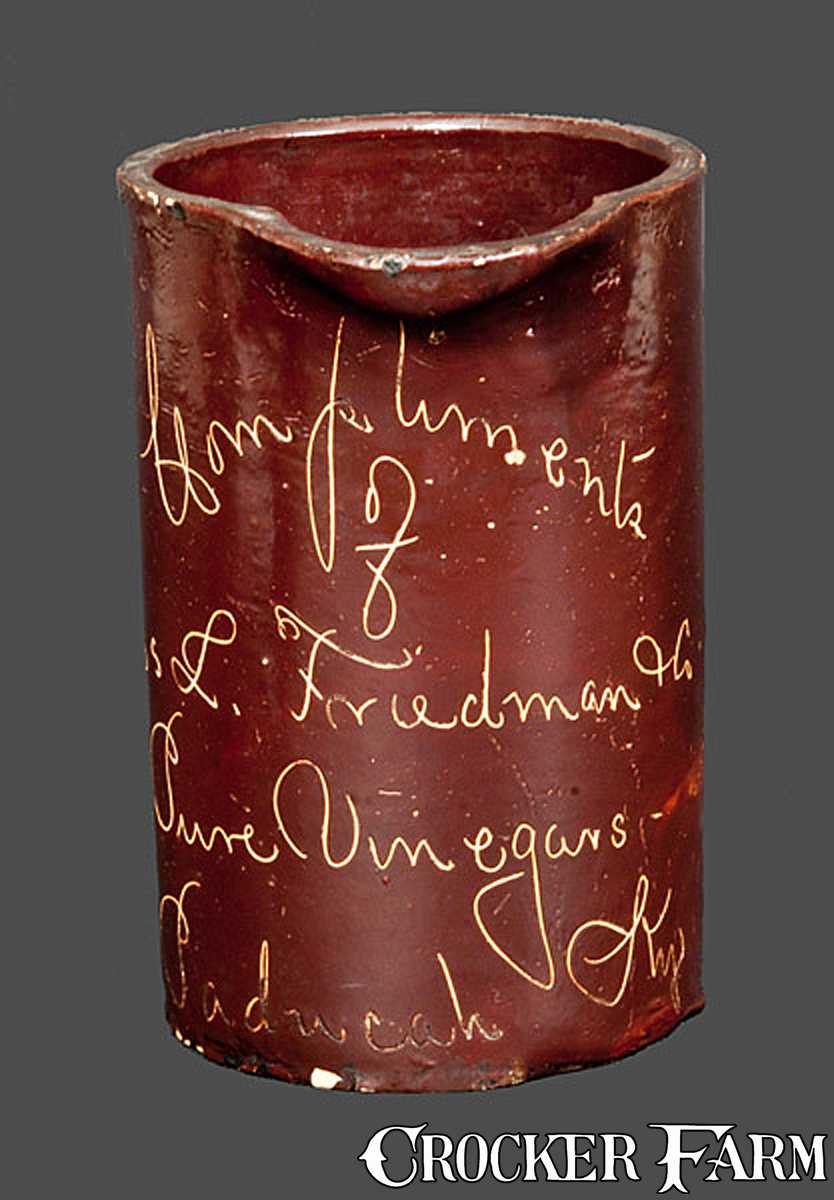 Compliments
of
s L. Friedman & Co
Pure Vinegars
Paducah Ky
CROCKER FARM